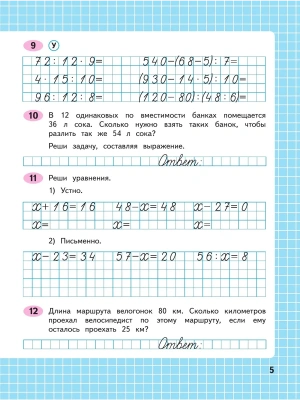 9 У
72:12·9= 540-(68-5):7=
4·15:10= (930-14·5):10=
96:12:8= (120-80):(48:6)=
10 В 12 одинаковых по вместимости банках помещается
36 л сока? Сколько нужно взять таких банок, чтобы
разлить так же 54 л сока?
Реши задачу, составляя выражение.
Ответ:
11 Реши уравнения.
1) Устно.
x+16=16 48-x=48 x-27=0
x= x= x=
2) Письменно.
x-23=34 57-x=20 56:x=8
12 Длина маршрута велогонок 80 км. Сколько километров
проехал велосипедист по этому маршруту, если ему
осталось проехать 25 км?
Ответ:
5